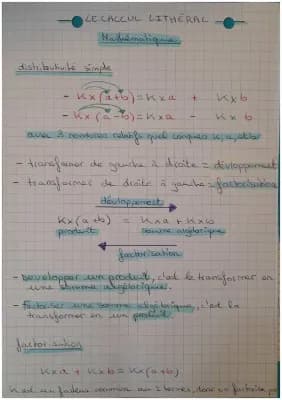 LE CALCUL LITHÉRAL
Mathématiques
distributivité simple
- K×(a+b)=K×a + K×b
- K×(a-b)=K×a - K×b
avec 3 nombres relatifs quelconques K, a, et b
- transformer de gauche à droite = développement
- transformer de droite à gauche = factorisation
développement
K×(a+b) = K×a+K×b
produit somme algébrique
factorisation
- Développer un produit, c'est le transformer en
une somme algébrique.
- Factoriser une somme algébrique, c'est la
transformer en un produit
factorisation
K×a + K×b = K×(a+b)
K est un facteur commun aux 2 termes, donc on factorise